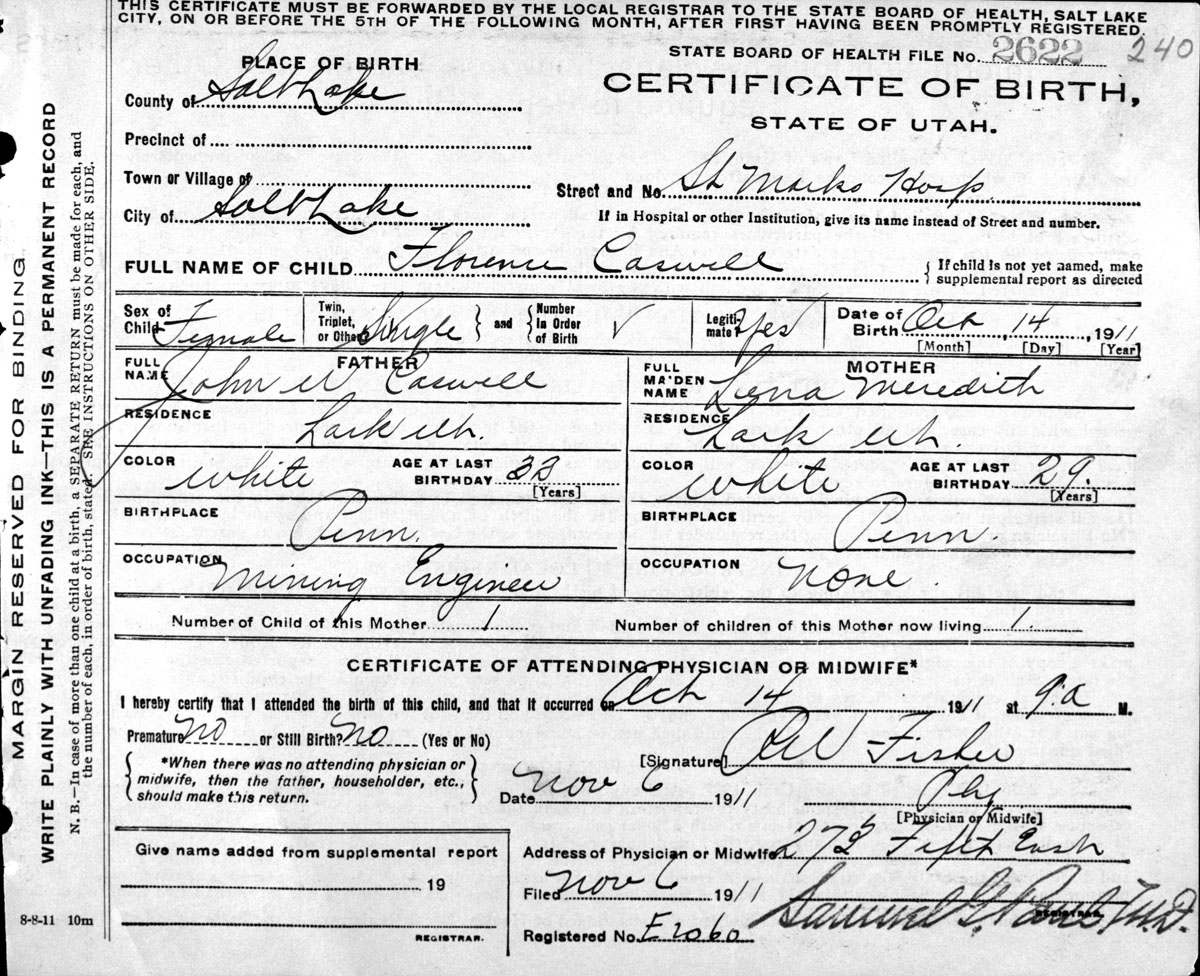 THIS CERTIFICATE MUST BE FORWARDED BY THE LOCAL REGISTRAR TO THE STATE BOARD OF HEALTH, SALT LAKE
CITY, ON OR BEFORE THE 5TH OF THE FOLLOWING MONTH, AFTER FIRST HAVING BEEN PROMPTLY REGISTERED.
STATE BOARD OF HEALTH FILE No. 2622 240
CERTIFICATE OF BIRTH,
STATE OF UTAH.
PLACE OF BIRTH
County of Salt Lake
Precinct of
Town or Village of
Street and No. St Marks Hosp.
City of Salt Lake
If in Hospital or other Institution, give its name instead of Street and number.
FULL NAME OF CHILD Florence Caswell
{ If child is not yet named, make
supplemental report as directed
Sex of Child Female
Twin, Triplet, or Other Single } and { Number In Order of Birth √
Legitimate? Yes
Date of Birth Oct. 14, 1911
[Month] [Day] [Year]
FATHER
FULL NAME John W Caswell
RESIDENCE Lark Ut.
COLOR White AGE AT LAST BIRTHDAY 32
[Years]
BIRTHPLACE Penn.
OCCUPATION Mining Engineer
MOTHER
FULL MAIDEN NAME Lena Meredith
RESIDENCE Lark Ut.
COLOR White AGE AT LAST BIRTHDAY 29.
[Years]
BIRTHPLACE Penn
OCCUPATION None.
Number of Child of this Mother 1 Number of children of this Mother now living 1.
CERTIFICATE OF ATTENDING PHYSICIAN OR MIDWIFE*
I hereby certify that I attended the birth of this child, and that it occurred on Oct 14 1911 at 9.a M.
Premature No or Still Birth? No (Yes or No)
{ *When there was no attending physician or
midwife, then the father, householder, etc.,
should make this return. }
[Signature] Fisher
Date Nov 6 1911 Phy
[Physician or Midwife]
Give name added from supplemental report
19
REGISTRAR.
Address of Physician or Midwife 272 Fifth East
Filed Nov 6 1911 Samuel G. Paul, M.D.
REGISTRAR.
Registered No. E2060
8-8-11 10m
MARGIN RESERVED FOR BINDING.
WRITE PLAINLY WITH UNFADING INK—THIS IS A PERMANENT RECORD
N. B.—In case of more than one child at a birth, a SEPARATE RETURN must be made for each, and
the number of each, in order of birth, stated. SEE INSTRUCTIONS ON OTHER SIDE.